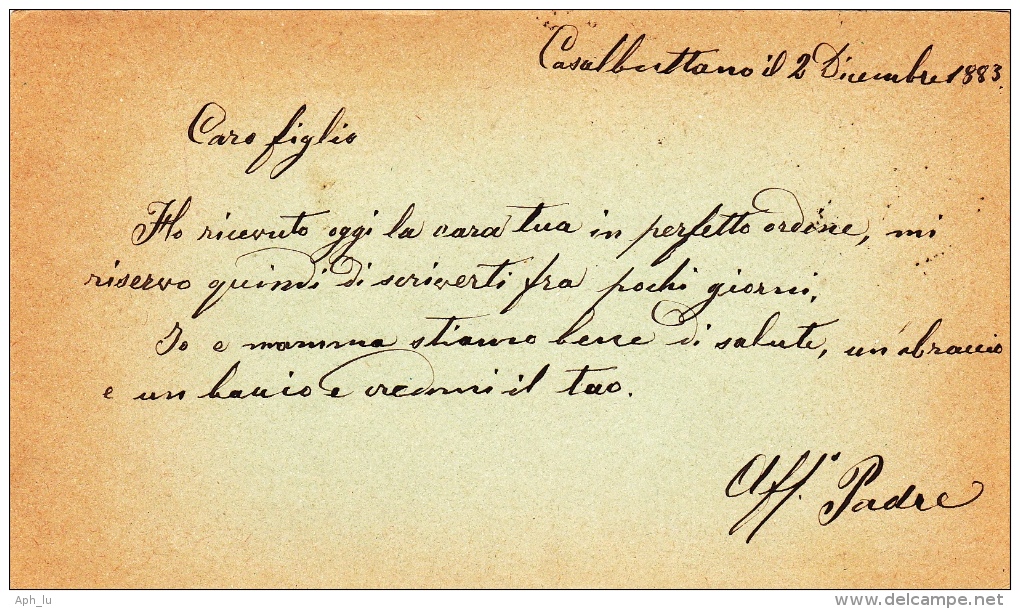 Casalbuttano il 2 Dicembre 1883.
Caro figlio
Ho ricevuto oggi la cara tua in perfetto ordine, mi
riservo quindi di scriverti fra pochi giorni.
Io e mamma stiamo bene di salute, un abraccio
e un baccio e credimi il tuo.
Aff.º Padre
Aph_lu
www.delcampe.net